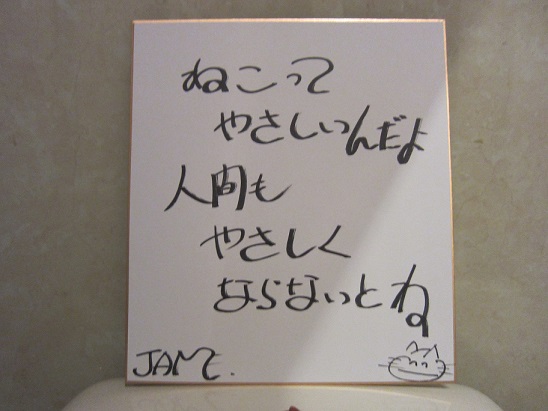 ねこって
やさしいんだよ
人間も
やさしく
ならないとね
JAME.